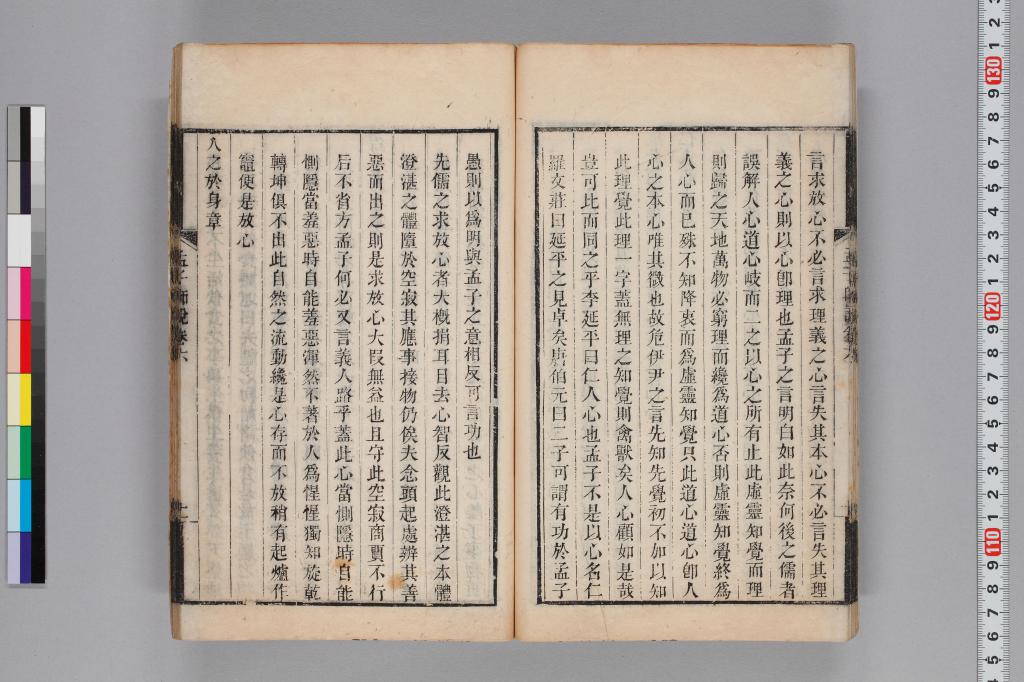 言求放心不必言求理義之心言失其本心不必言失其理
義之心則以心卽理也孟子之言明白如此奈何後之儒者
誤解人心道心岐而二之以心之所有止此虛靈知覺而理
則歸之天地萬物必窮理而纔爲道心否則虛靈知覺終爲
人心而已殊不知降衷而爲虛靈知覺只此道心道心卽人
心之本心唯其微也故危伊尹之言先知先覺初不加以知
此理覺此理一字蓋無理之知覺則禽獸矣人心顧如是哉
豈可比而同之乎李延平曰仁人心也孟子不是以心名仁
羅文莊曰延平之見卓矣唐伯元曰二子可謂有功於孟子
愚則以爲明與孟子之意相反可言功也
先儒之求放心者大概捐耳目去心智反觀此澄湛之本體
澄湛之體墮於空寂其應事接物仍俟夫念頭起處辨其善
惡而出之則是求放心大段無益也且守此空寂商賈不行
后不省方孟子何必又言義人路乎蓋此心當惻隱時自能
惻隱當羞惡時自能羞惡渾然不著於人爲惺惺獨知旋乾
轉坤俱不出此自然之流動纔是心存而不放稍有起爐作
竈便是放心
人之於身章
孟子師說卷六